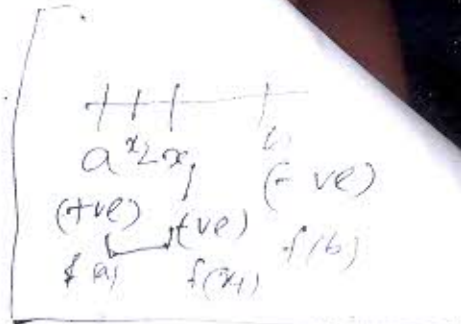 a x₂ x₁ b
(+ve) (+ve) (-ve)
f(a) f(x₁) f(b)